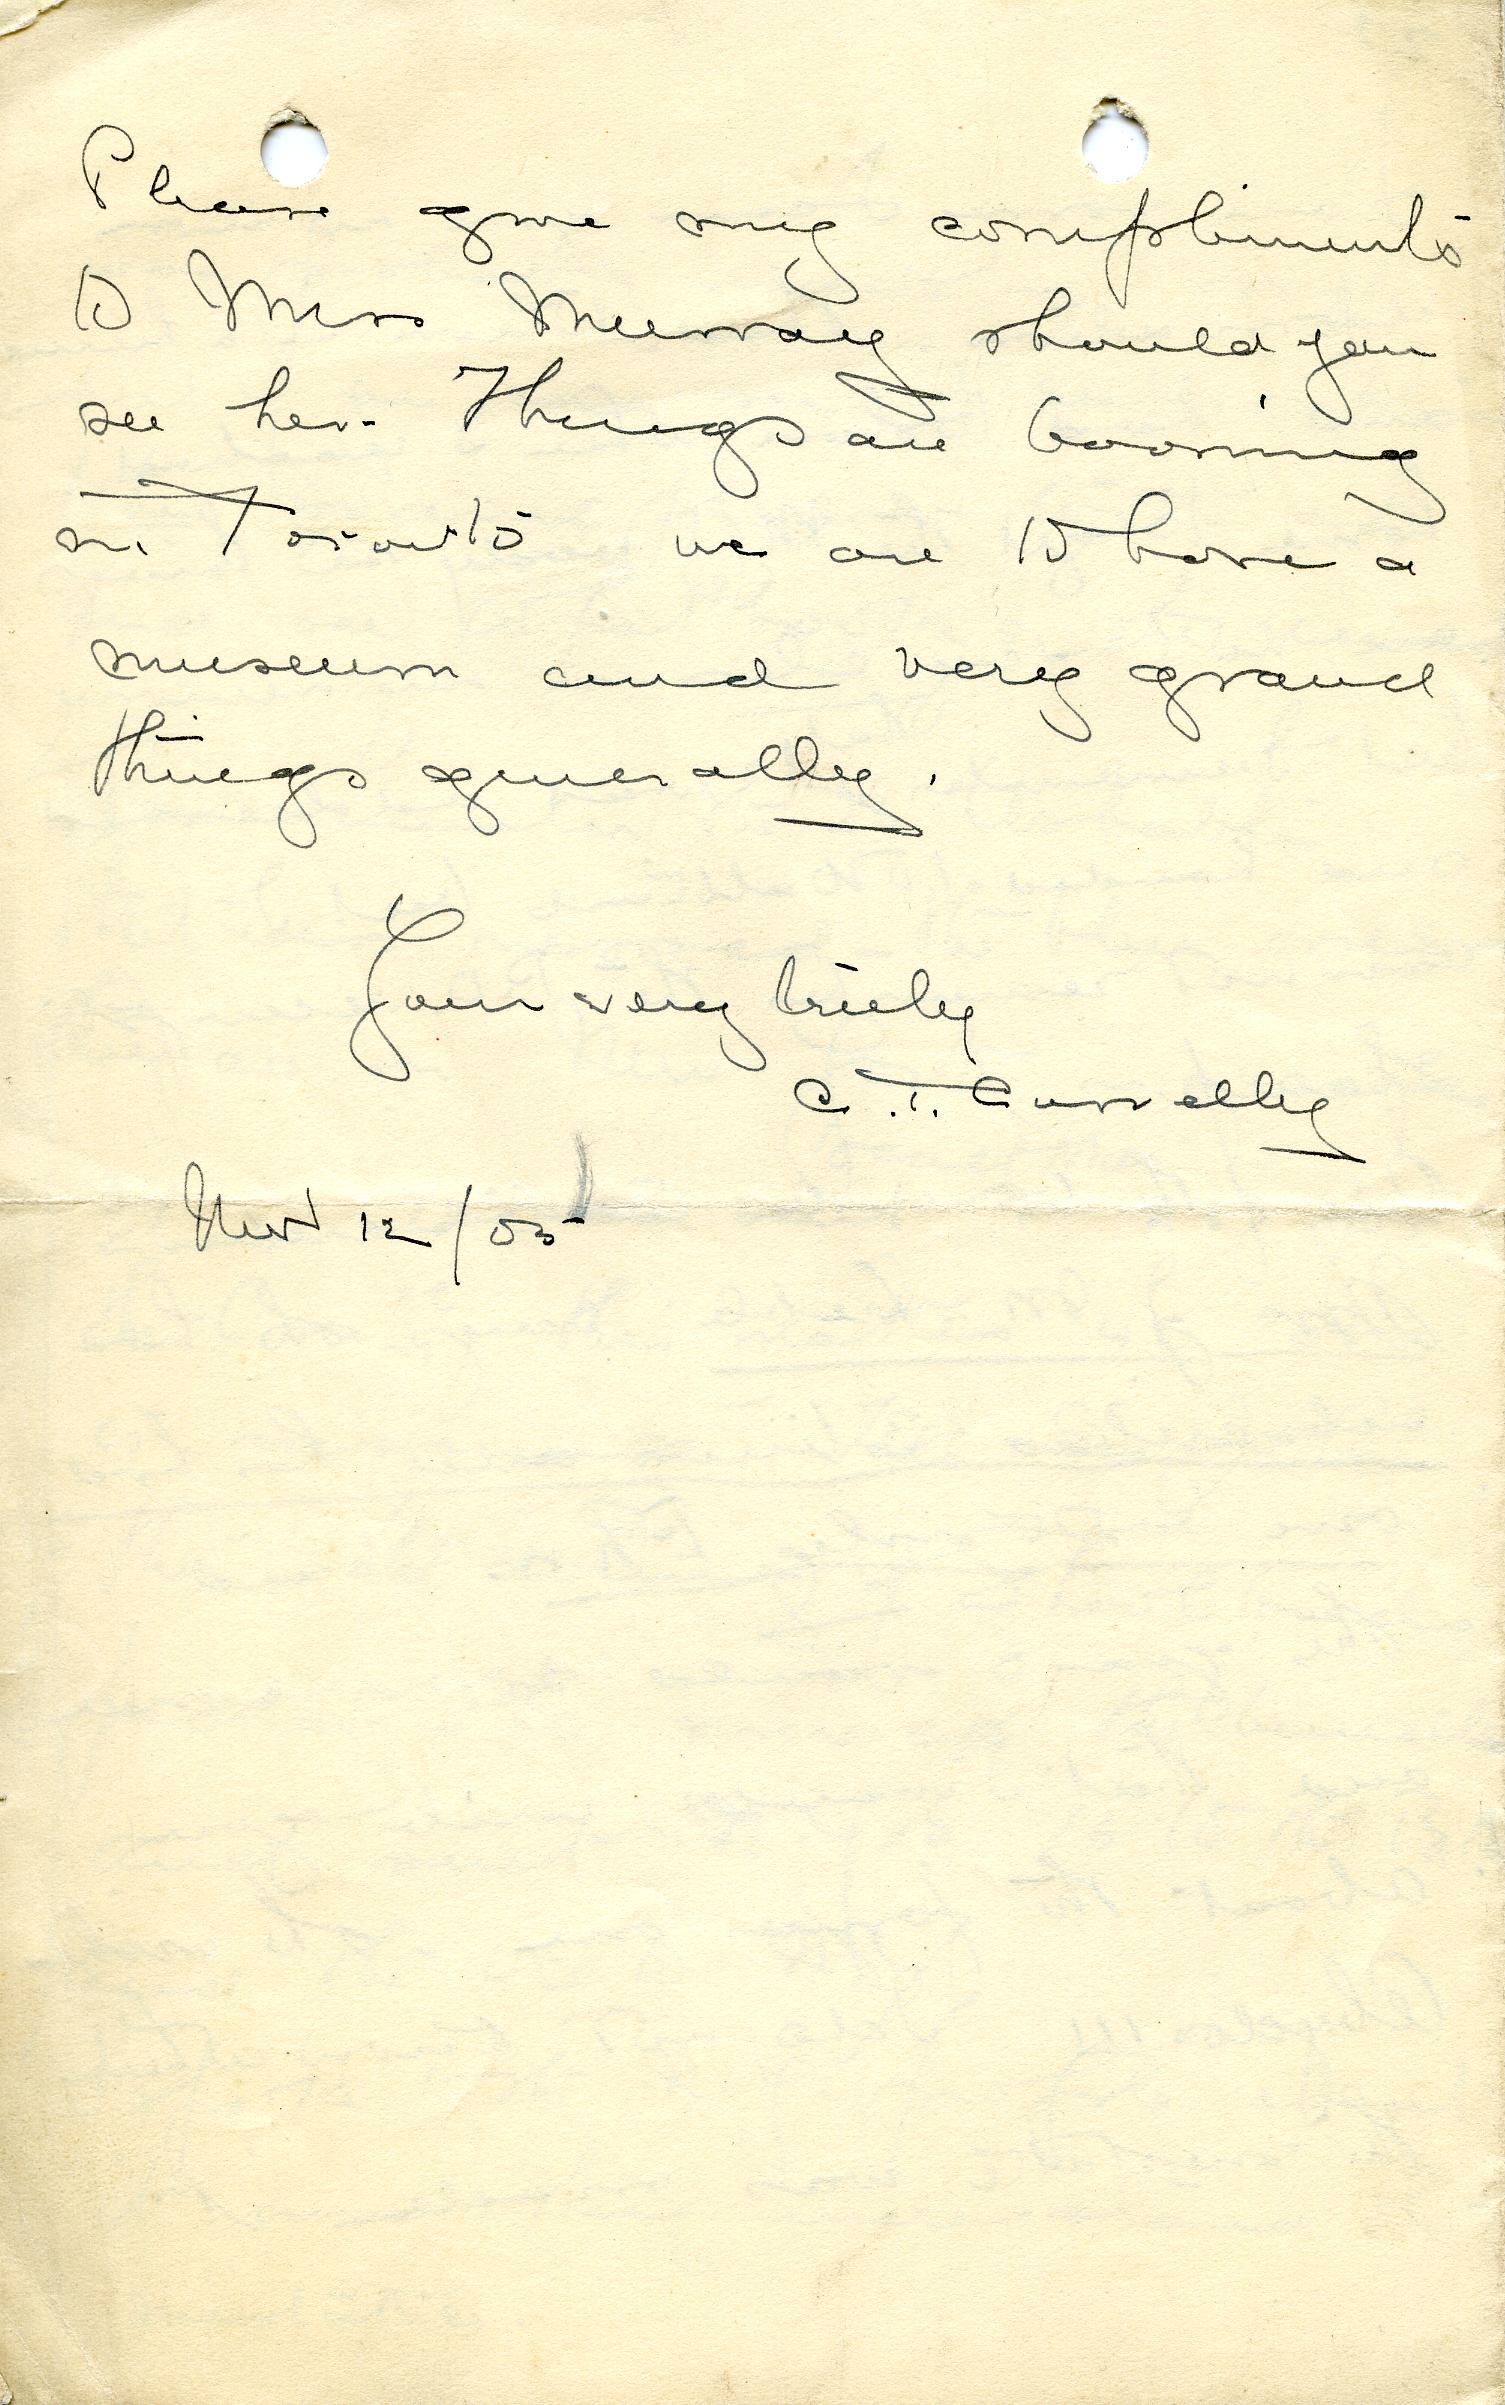 Please give my compliments
to Miss Murray should you
see her. Things are booming
in Toronto we are to have a
museum and very grand
things generally.
Yours very truly
C. T. Currelly
Nov 12/05